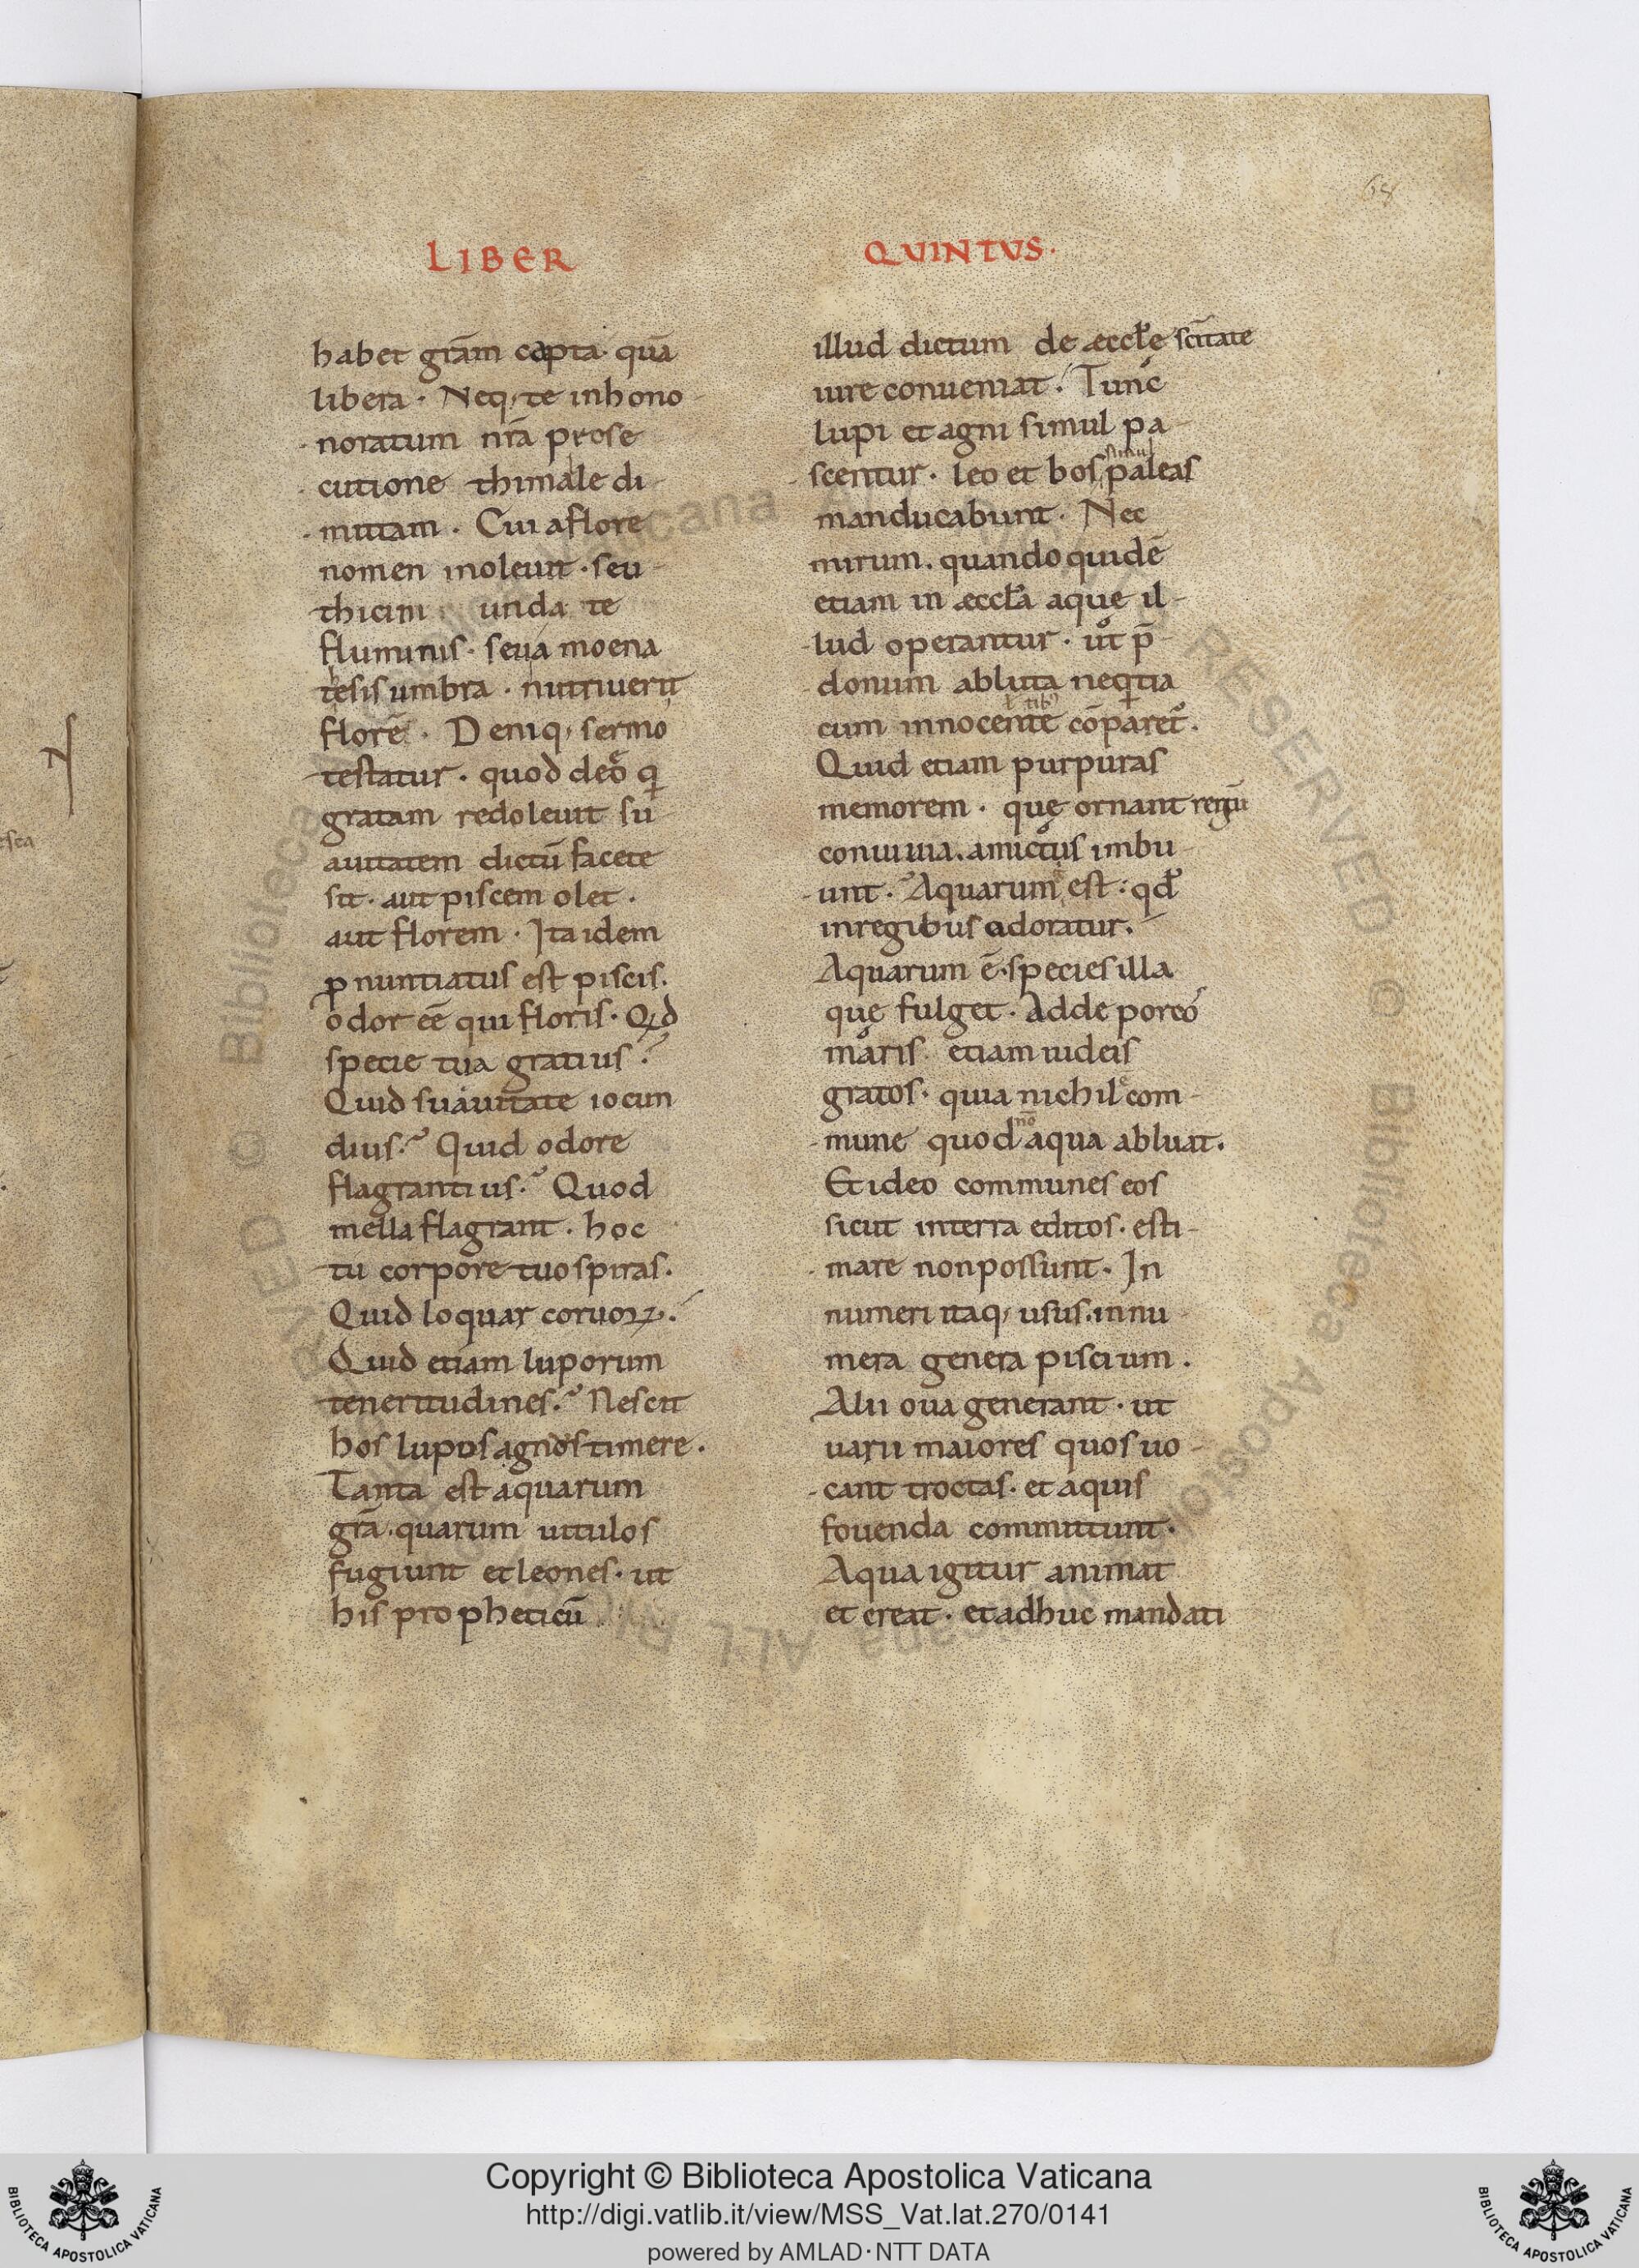 68
LIBER
habet grām capta quā
libera · Neq; te inhono-
noratum nrā prose
cutione thimale di-
mittam · Cui a flore
nomen inoleuit · seu
thicini unda te
fluminis · seu amoena
tesis umbra · nutrieruN̄
florē · Deniq; sermo
testatur · quod de eo qi
gratam redoleuit su
auitatem dictū facete
sit · aut piscem olet ·
aut florem · Ita idem
ꝓnuntiatus est piscis.
odor eē qui floris · Qd
specie tua gratius ?
Quid suauitate iocun
dius ? Quid odore
flagrantius ? Quod
mella flagrant · hoc
tu corpore tuo spiras.
Quid loquar coruoꝝ ?
Quid etiam luporum
teneritudines ? Nescit
hos lupus agnos timere.
Tanta est aquarum
grā · quarum uitulos
fugiunt et leones · ut
his propheticū
QUINTVS.
illud dictum de æccłe scītate
iure conueniat. Tunc
lupi et agni simul pa-
scentur · leo et bos simul paleas
manducabunt · Nec
mirum. quando quidē
etiam in æccła aque il-
lud operantur · ut p̄-
donum abluta neqtia
cum innocente ł tib; cōparet.
Quid etiam purpuras
memorem · quę ornant regū
conuiuia. amictus imbu-
unt. Aquarum est : qd
in regibus adoratur.
Aquarum ē · species illa
quę fulget · Adde porcos
maris etiam iudeis
gratos · quia nichil com-
mune quod nō aqua abluat.
Et ideo communes eos
sicut in terra editos · esti-
mare non possunt · In
numeri itaq; usus. innu
mera genera piscium.
Alii oua generant · ut
uarii maiores quos uo-
cant troctas · et aquis
fouenda committunt ·
Aqua igitur animat
et creat · et adhuc mandati
Copyright © Biblioteca Apostolica Vaticana
http://digi.vatlib.it/view/MSS_Vat.lat.270/0141
powered by AMLAD·NTT DATA
BIBLIOTECA APOSTOLICA VATICANA
BIBLIOTECA APOSTOLICA VATICANA